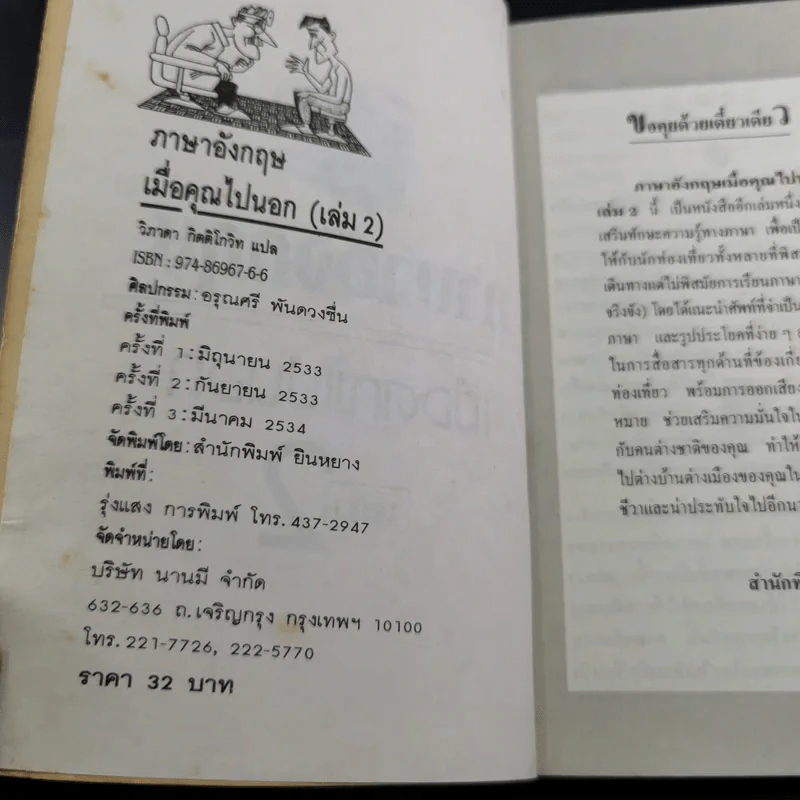 ภาษาอังกฤษ
เมื่อคุณไปนอก (เล่ม 2)
วิภาดา กิตติโกวิท แปล
ISBN : 974-86967-6-6
ศิลปกรรม : อรุณศรี พันดวงชื่น
ครั้งที่พิมพ์
ครั้งที่ 1 : มิถุนายน 2533
ครั้งที่ 2 : กันยายน 2533
ครั้งที่ 3 : มีนาคม 2534
จัดพิมพ์โดย : สำนักพิมพ์ ยินหยาง
พิมพ์ที่ :
รุ่งแสง การพิมพ์ โทร. 437-2947
จัดจำหน่ายโดย :
บริษัท นานมี จำกัด
632-636 ถ.เจริญกรุง กรุงเทพฯ 10100
โทร. 221-7726, 222-5770
ราคา 32 บาท
ขอคุยด้วยเดี๋ยวเดียว
ภาษาอังกฤษเมื่อคุณไป
เล่ม 2 นี้ เป็นหนังสืออีกเล่มหนึ่ง
เสริมทักษะความรู้ทางภาษา เพื่อเป็
ให้กับนักท่องเที่ยวทั้งหลายที่พิส
เดินทางแต่ไม่พิสมัยการเรียนภาษา
จริงจัง) โดยได้แนะนำศัพท์ที่จำเป็น
ภาษา และรูปประโยคที่ง่าย ๆ
ในการสื่อสารทุกด้านที่ข้องเกี่
ท่องเที่ยว พร้อมการออกเสียง
หมาย ช่วยเสริมความมั่นใจใน
กับคนต่างชาติของคุณ ทำให้
ไปต่างบ้านต่างเมืองของคุณใน
ชีวาและน่าประทับใจไปอีกนา
สำนักพิ